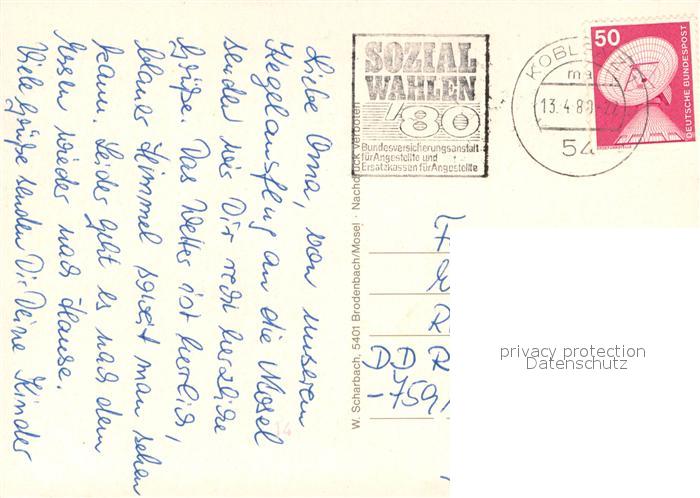 Liebe Oma, von unseren
Kegelausflug an die Mosel
senden wir Dir recht herzliche
Grüße. Das Wetter ist herrlich,
blauer Himmel soweit man sehen
kann. Leider geht es nach dem
Essen wieder nach Hause.
Viele Grüße senden Dir Deine Kinder
W. Scharbach, 5401 Brodenbach/Mosel · Nachdruck verboten
SOZIAL
WAHLEN
'80
Bundesversicherungsanstalt
für Angestellte und
Ersatzkassen für Angestellte
KOBLENZ
13.4.80
54
50
DEUTSCHE BUNDESPOST
R
DDR R
-759
privacy protection
Datenschutz
14